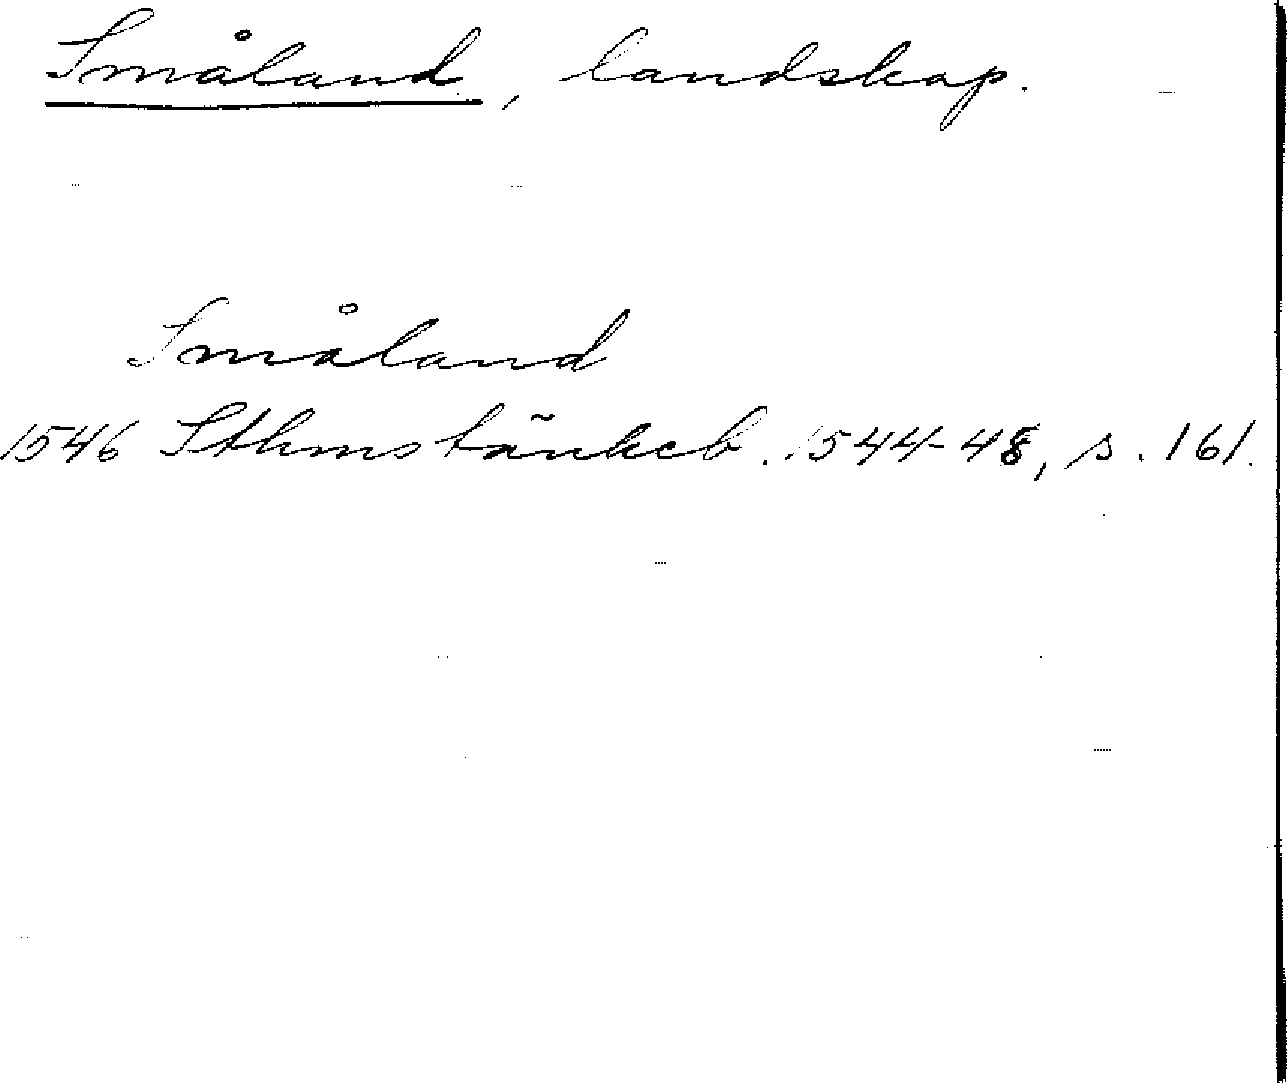 Småland, landskap.
Småland
1546 Sthmstänkeb. 1544-48, s. 161.